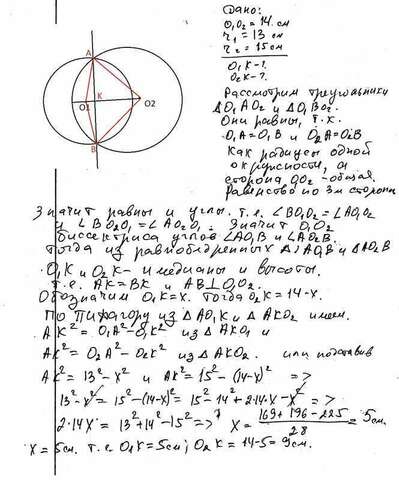 Дано:
O₁O₂ = 14 см
r₁ = 13 см
r₂ = 15 см
O₁K - ?
O₂K - ?
A
O1
K
O2
B
Рассмотрим треугольники
ΔO₁AO₂ и ΔO₁BO₂.
Они равны, т.к.
O₁A = O₁B и O₂A = O₂B
как радиусы одной
окружности, а
сторона O₁O₂ - общая.
Равенство по 3м сторонам
Значит равны и углы. т.е. ∠BO₁O₂ = ∠AO₁O₂
и ∠BO₂O₁ = ∠AO₂O₁. Значит O₁O₂
биссектриса углов ∠AO₁B и ∠AO₂B.
Тогда из равнобедренных ΔAO₁B и ΔAO₂B
O₁K и O₂K - и медианы и высоты.
т.е. AK = BK и AB ⊥ O₁O₂.
Обозначим O₁K = x. Тогда O₂K = 14 - x.
По Пифагору из ΔAO₁K и ΔAKO₂ имеем.
AK² = O₁A² - O₁K² из ΔAKO₁ и
AK² = O₂A² - O₂K² из ΔAKO₂. или подставив
AK² = 13² - x² и AK² = 15² - (14-x)² =>
13² - x² = 15² - (14-x)² = 15² - 14² + 2·14·x - x² =>
2·14x = 13² + 14² - 15² => x = (169 + 196 - 225)/28 = 5см.
x = 5см. т.е. O₁K = 5см; O₂K = 14-5 = 9см.